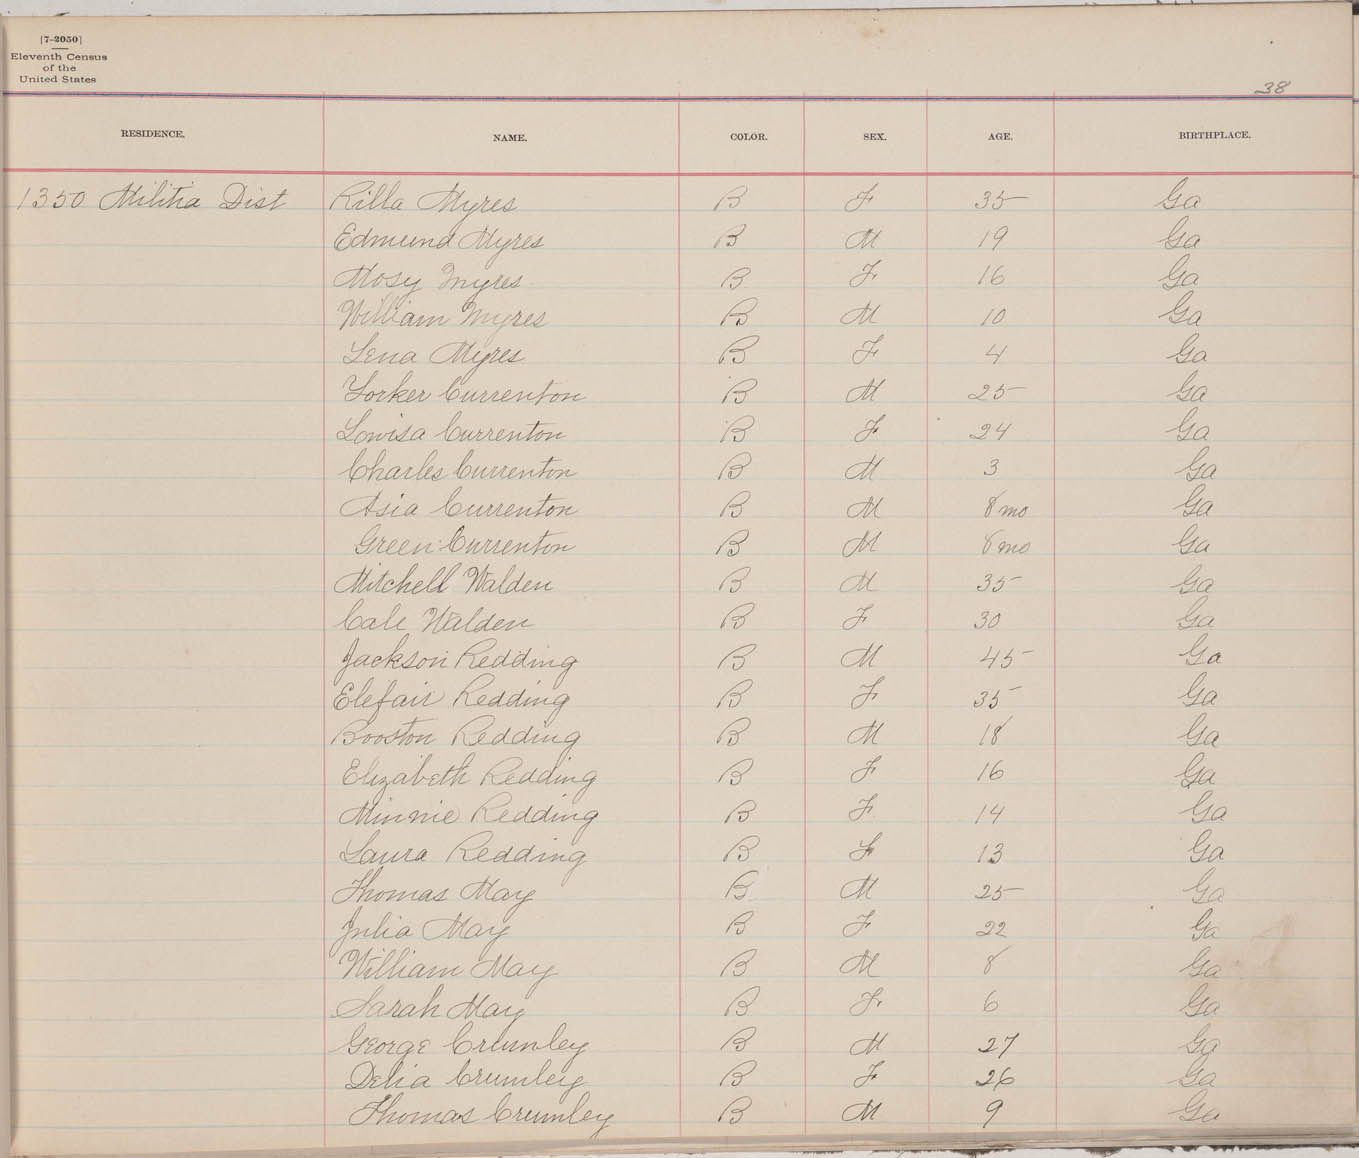 [7-2050]
Eleventh Census
of the
United States
38
RESIDENCE. NAME. COLOR. SEX. AGE. BIRTHPLACE.
1350 Militia Dist Rilla Myres B F 35 Ga
Edmund Myres B M 19 Ga
Mosy Myres B F 16 Ga
William Myres B M 10 Ga
Lena Myres B F 4 Ga
Yorker Currenton B M 25 Ga
Lovisa Currenton B F 24 Ga
Charles Currenton B M 3 Ga
Asia Currenton B M 8 mo Ga
Green Currenton B M 8 mo Ga
Mitchell Walden B M 35 Ga
Cale Walden B F 30 Ga
Jackson Redding B M 45 Ga
Elefair Redding B F 35 Ga
Booston Redding B M 18 Ga
Elizabeth Redding B F 16 Ga
Minnie Redding B F 14 Ga
Laura Redding B F 13 Ga
Thomas May B M 25 Ga
Julia May B F 22 Ga
William May B M 8 Ga
Sarah May B F 6 Ga
George Crumley B M 27 Ga
Delia Crumley B F 26 Ga
Thomas Crumley B M 9 Ga